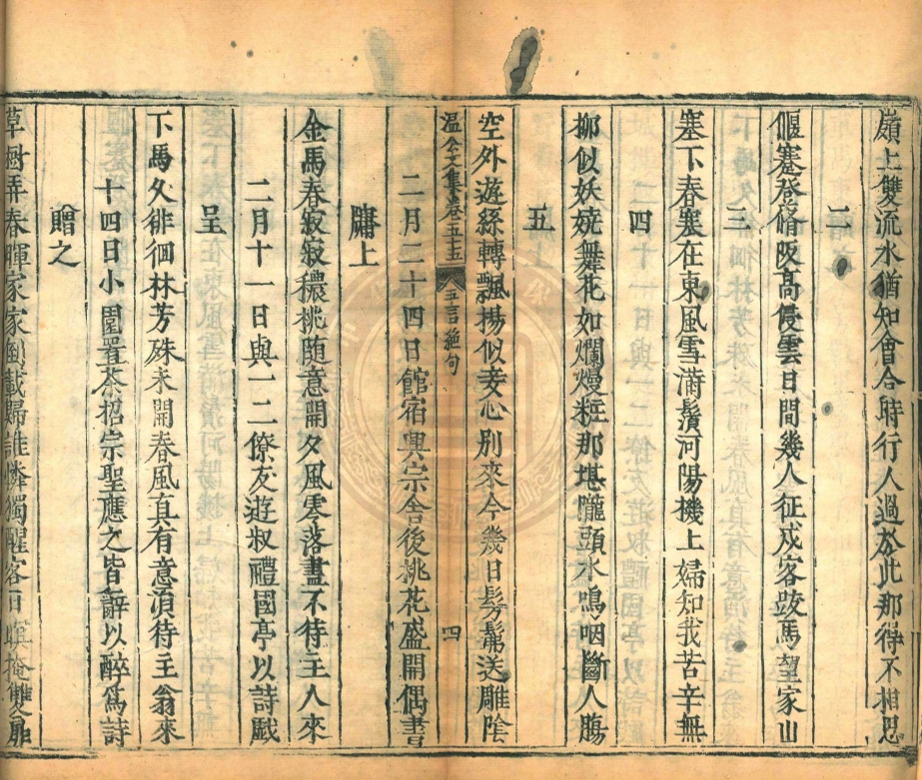 嶺上雙流水猶知會合時行人過於此那得不相思
二
偃蹇登脩阪高侵雲日間幾人征戍客跂馬望家山
三
塞下春寒在東風雪滿鬢河陽機上婦知我苦辛無
四
柳似妖嬈舞花如爛熳粧那堪隴頭水嗚咽斷人腸
五
空外遊絲轉飄揚似妾心別來今幾日髣髴送雕陰
溫公文集卷五十五 五言絶句 四
二月二十四日館宿興宗舍後桃花盛開偶書
牗上
金馬春寂寂穠桃随意開夕風零落盡不待主人來
二月十一日與一二僚友遊叔禮國亭以詩戲
呈
下馬久徘徊林芳殊未開春風真有意湏待主翁來
十四日小園置茶招宗聖應之皆辭以醉爲詩
贈之
草樹弄春暉家家倒載歸誰憐獨醒客日暝掩雙扉